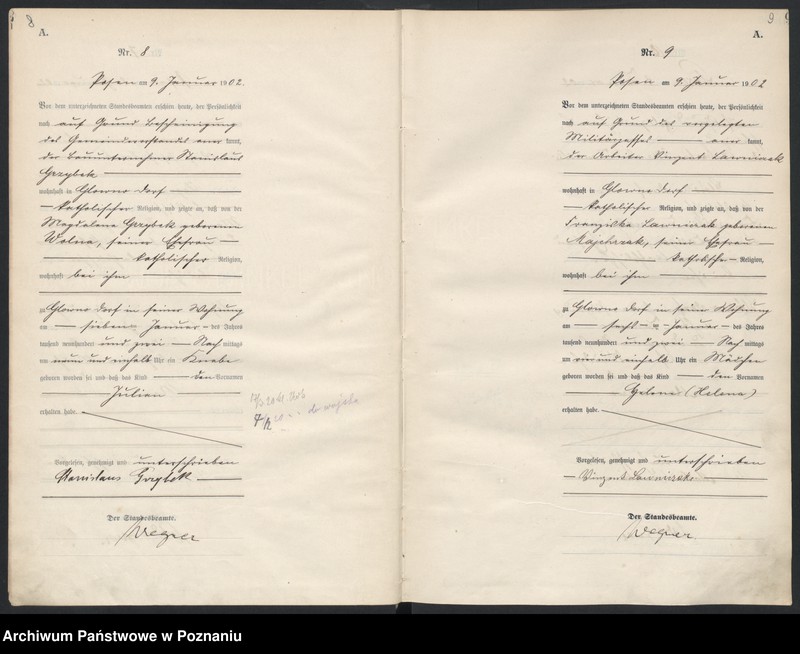 8
A.
Nr. 8
Posen am 9. Januar 1902.
Vor dem unterzeichneten Standesbeamten erschien heute, der Persönlichkeit
nach auf Grund Bescheinigung
des Gemeindevorstandes aner kannt,
der Bauunternehmer Stanislaus
Grzybek
wohnhaft in Glowno Dorf
katholischer Religion, und zeigte an, daß von der
Magdalena Grzybek geborenen
Wolna, seiner Ehefrau
katholischer Religion,
wohnhaft bei ihm
zu Glowno Dorf in seiner Wohnung
am sieben Januar des Jahres
tausend neunhundert und zwei Nach mittags
um neun und einhalb Uhr ein Knabe
geboren worden sei und daß das Kind den Vornamen
Julian
erhalten habe.
Vorgelesen, genehmigt und unterschrieben
Stanislaus Grzybek
Der Standesbeamte.
Wegner
9
A.
Nr. 9
Posen am 9. Januar 1902
Vor dem unterzeichneten Standesbeamten erschien heute, der Persönlichkeit
nach auf Grund des vorgelegten
Militärpasses aner kannt,
der Arbeiter Vinzent Lawniczak
wohnhaft in Glowno Dorf
katholischer Religion, und zeigte an, daß von der
Franziska Lawniczak geborenen
Majchrzak, seiner Ehefrau
katholischer Religion,
wohnhaft bei ihm
zu Glowno Dorf in seiner Wohnung
am sechs Januar des Jahres
tausend neunhundert und zwei Nach mittags
um vier und einhalb Uhr ein Mädchen
geboren worden sei und daß das Kind den Vornamen
Helena (Helena)
erhalten habe.
Vorgelesen, genehmigt und unterschrieben
Vinzent Lawniczak
Der Standesbeamte.
Wegner
Archiwum Państwowe w Poznaniu